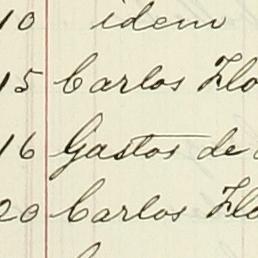 10 idem
15 Carlos Flo
16 Gastos de
20 Carlos Flo